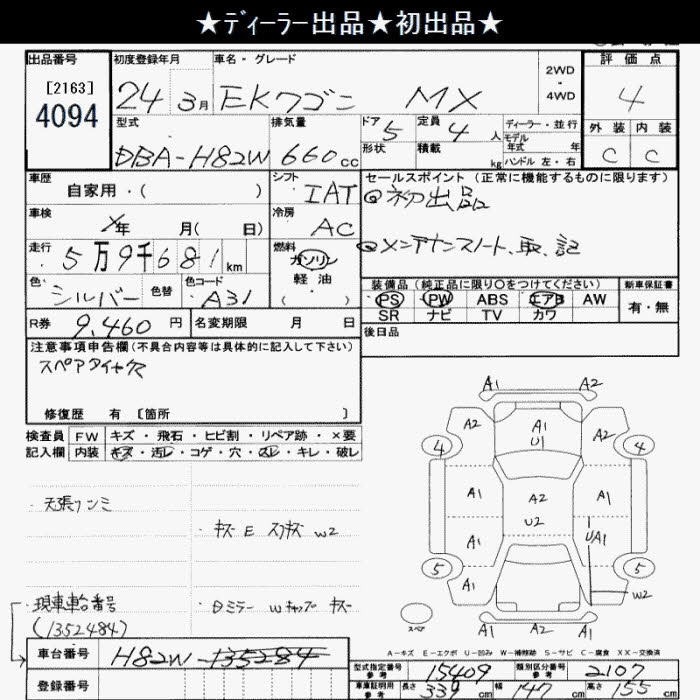 ★ディーラー出品★初出品★
出品番号 初度登録年月 車名・グレード 2WD・4WD 評価点
[2163]
4094
24 3月 EKワゴン MX 4
型式 排気量 ドア 5 定員 4人 ディーラー・並行 外装 内装
DBA-H82W 660cc 形状 積載 kg モデル年式 年 ハンドル 左・右 C C
車歴 自家用・( ) シフト IAT セールスポイント (正常に機能するものに限ります)
車検 X年 月( 日) 冷房 AC ◎初出品
走行 5万9千681km 燃料 ガソリン 軽油 ( ) ◎メンテナンスノート、取、記
色 シルバー 色替 色コード A31 装備品 (純正品に限り○をつけてください) 新車保証書
PS PW ABS エアB AW 有・無
SR ナビ TV カワ
R券 9,460円 名変期限 月 日 後日品
注意事項申告欄 (不具合内容等は具体的に記入して下さい)
スペアタイヤ欠
修復歴 有 [箇所 ]
検査員 FW キズ・飛石・ヒビ割・リペア跡・×要
記入欄 内装 キズ・汚レ・コゲ・穴・スレ・キレ・破レ
・天張シミ
・キズ E スリキズ W2
・現車車台番号
(1352484)
・日ミラー Wキャップ キズ
A1 A2
A2 A1 U1 A2
4 4
A1 A2 A1
U2
A1 A1 UA1
5 A1 5
W2
スペア A1 A2 A1
A-キズ E-エクボ U-凹み W-補修跡 S-サビ C-腐食 XX-交換済
車台番号 H82W-135284
登録番号
型式指定番号 参考 15409 類別区分番号 参考 2107
車庫証明用 参考 長さ 339cm 幅 147cm 高さ 155cm